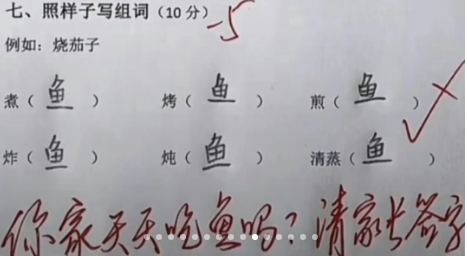 七、照样子写组词（10 分） -5
例如：烧茄子
煮（ 鱼 ） 烤（ 鱼 ） 煎（ 鱼 ）
炸（ 鱼 ） 炖（ 鱼 ） 清蒸（ 鱼 ）
你家天天吃鱼吗？请家长签字